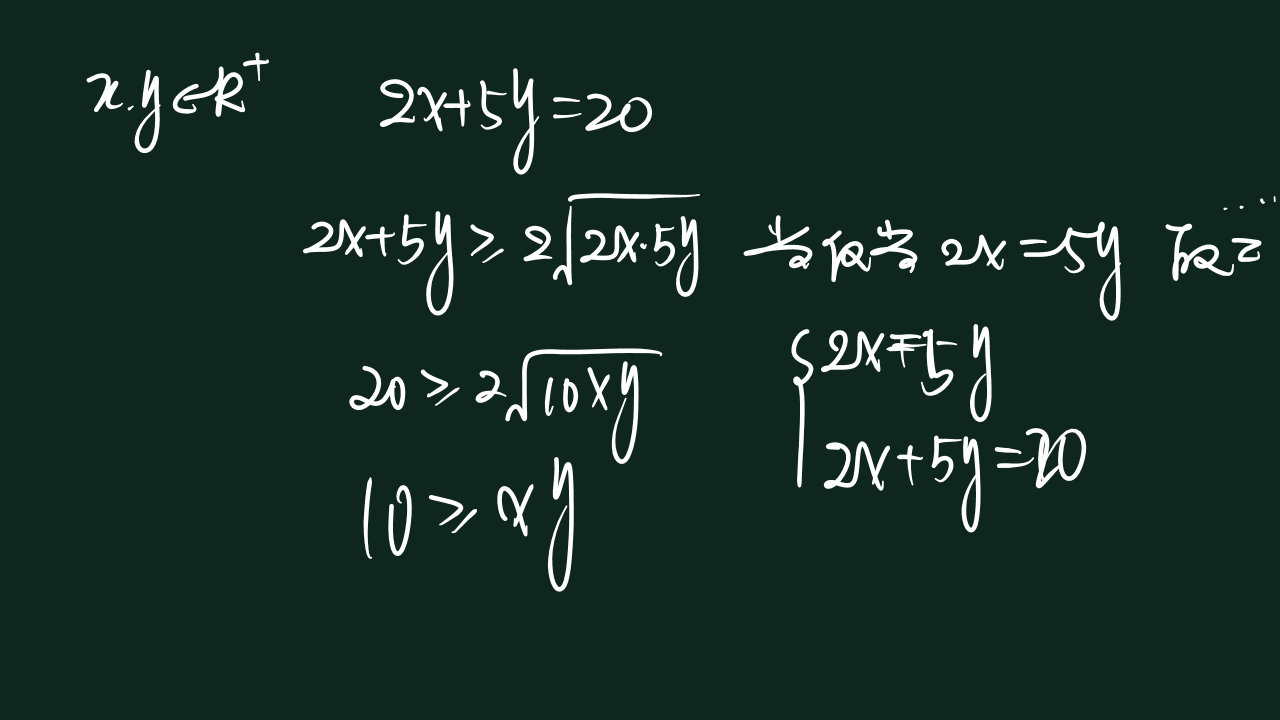 x.y∈R⁺ 2x+5y=20
2x+5y≥2√(2x·5y) 当且仅当 2x=5y 取=
20≥2√(10xy) {2x=5y
10≥xy 2x+5y=20